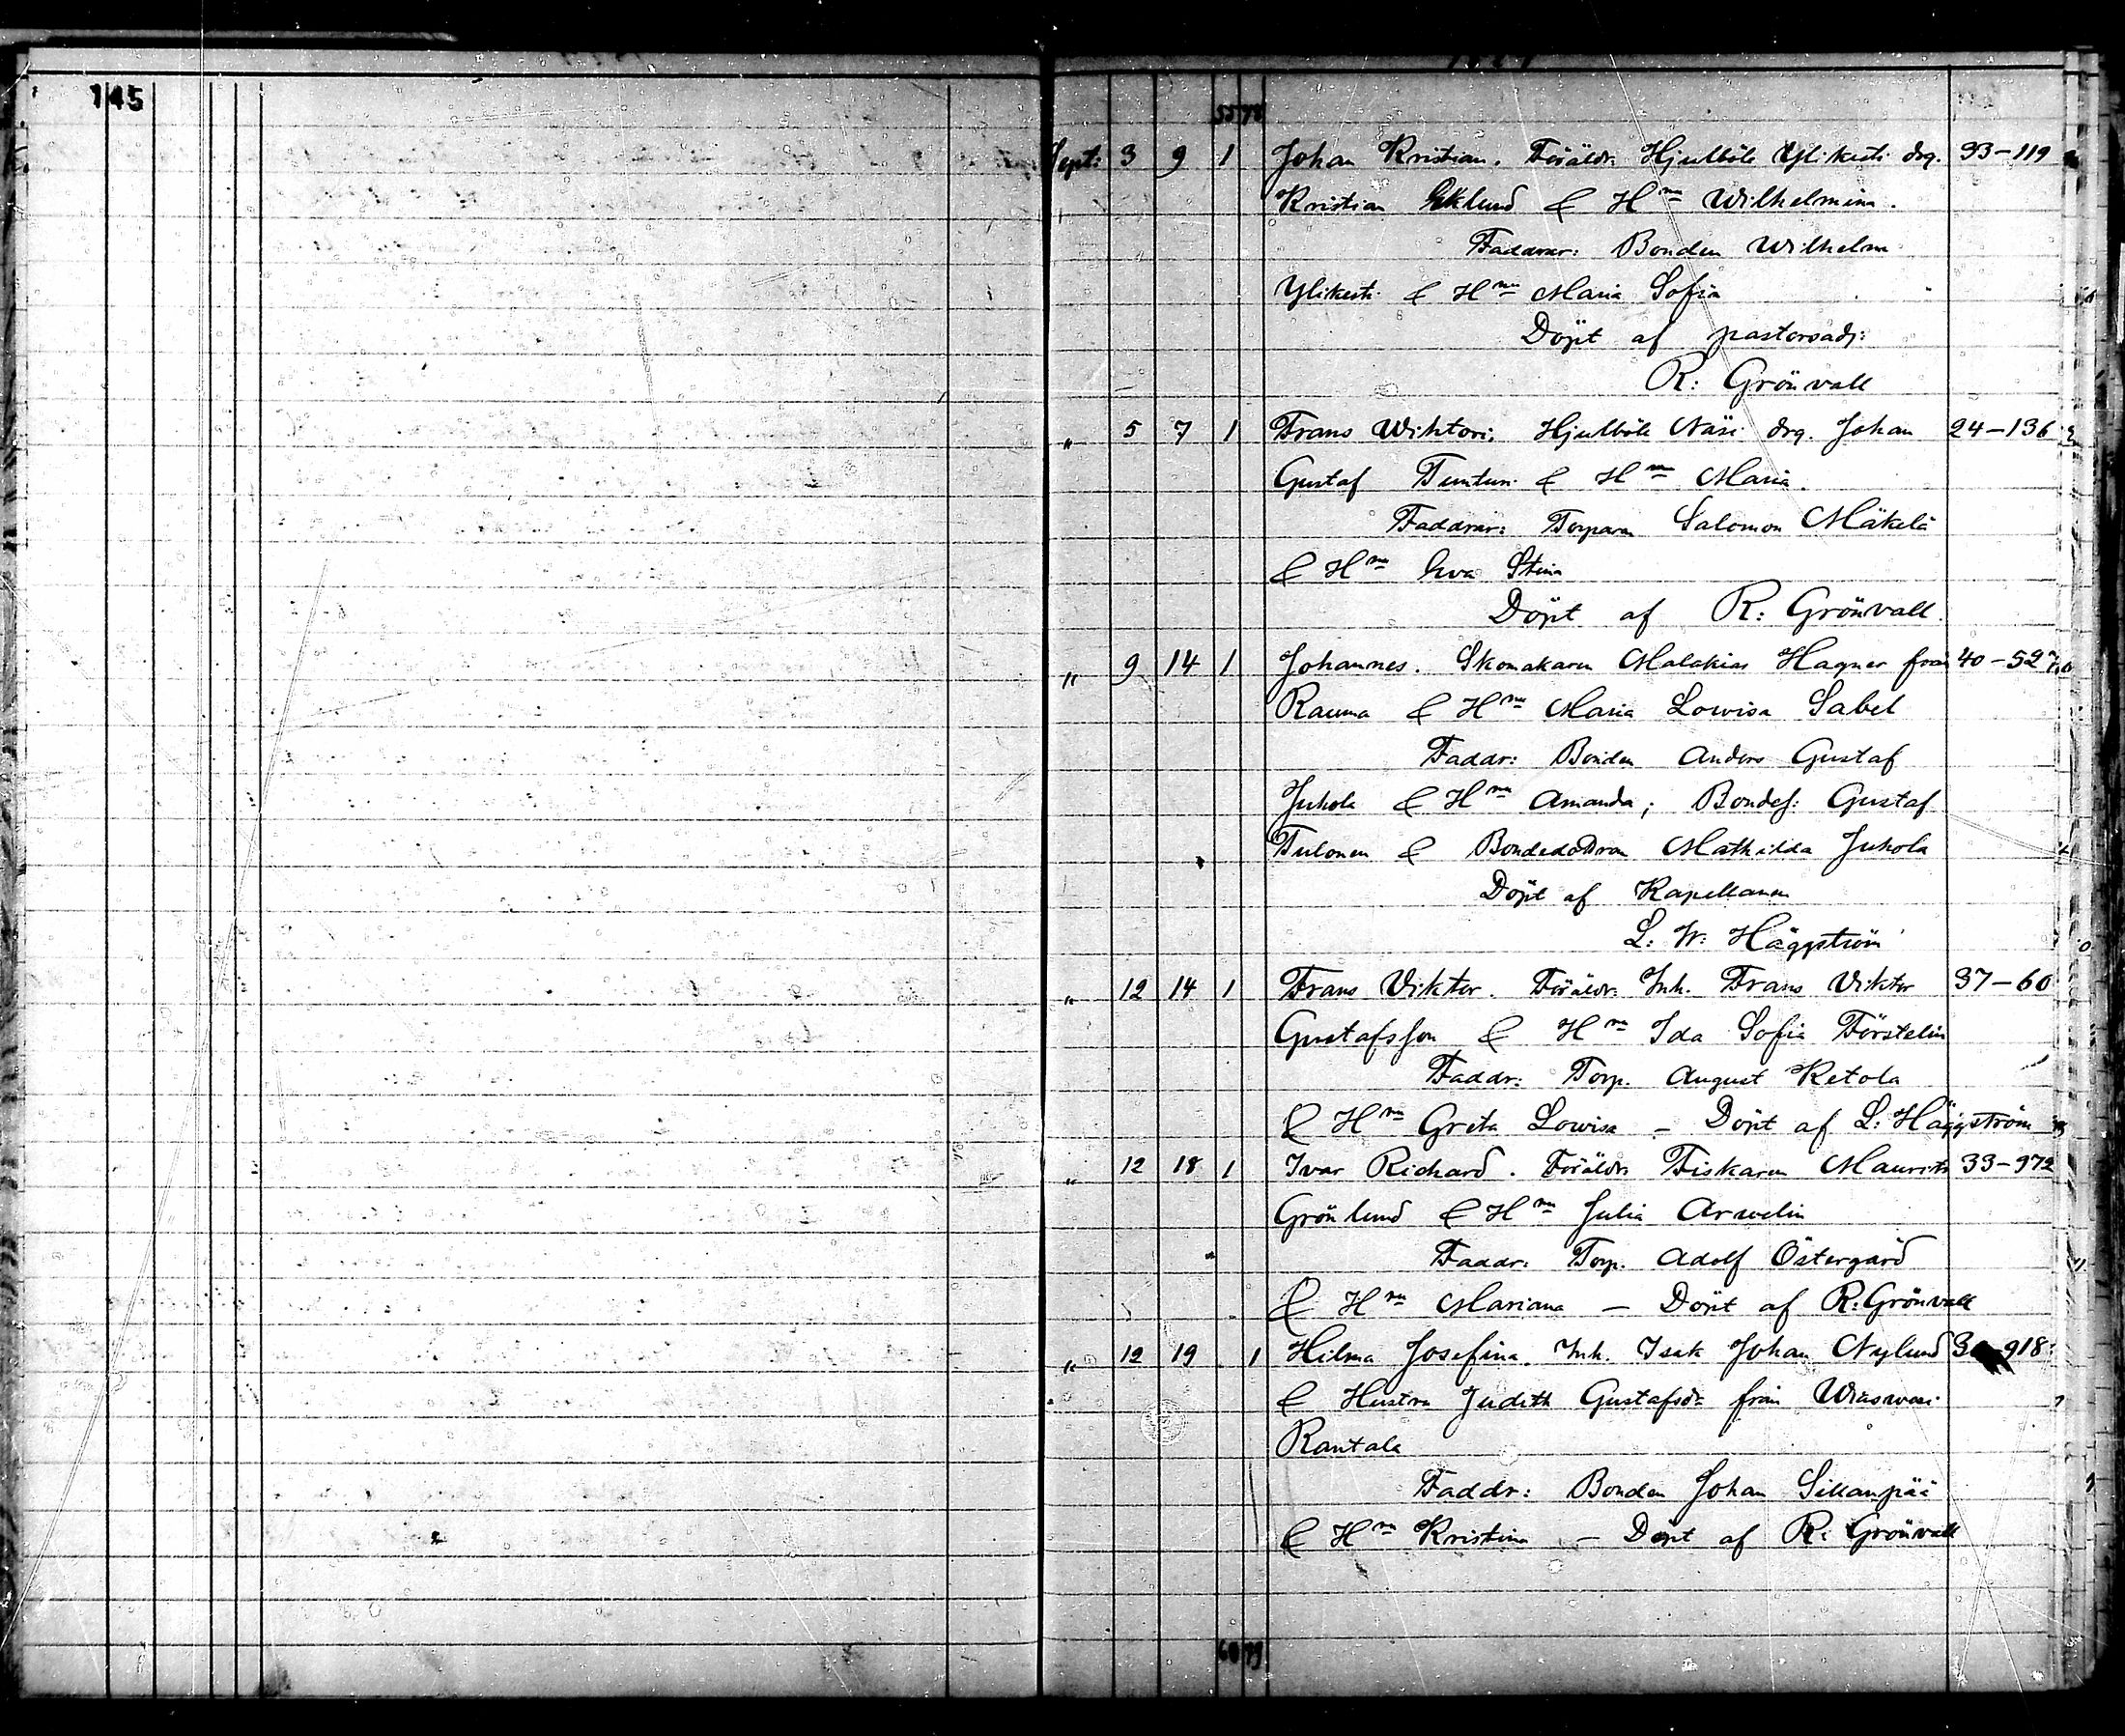 145
55 78
Sept: 3 9 1 Johan Kristian. Föräldr: Hjulböle Ylikesti drg. 33-119
Kristian Eklund & Hru Wilhelmina.
Faddrar: Bonden Wilhelm
Ylikesti & Hru Maria Sofia
Döpt af pastorsadj:
R: Grönvall
" 5 7 1 Frans Wiktori, Hjulböle Näsi drg. Johan 24-136
Gustaf Tunturi & Hru Maria.
Faddrar: Torparen Salomon Mäkelä
& Hru Eva Stina
Döpt af R: Grönvall.
" 9 14 1 Johannes. Skomakaren Malakias Hagner från 40-52
Rauma & Hru Maria Lowisa Sabel
Faddr: Bonden Anders Gustaf
Juhola & Hru Amanda; Bondes: Gustaf
Tulonen & Bondedottren Mathilda Juhola
Döpt af Kapellanen
L. W. Häggström
" 12 14 1 Frans Viktor. Föräldr. Inh. Frans Viktor 37-60
Gustafsson & Hru Ida Sofia Förstelin
Faddr: Torp. August Ketola
& Hru Greta Lowisa – Döpt af L: Häggström
" 12 18 1 Ivar Richard. Föräldr: Fiskaren Maurits 33-972
Grönlund & Hru Julia Arwelin
Faddr: Torp. Adolf Östergård
& Hru Mariana – Döpt af R: Grönvall
" 12 19 1 Hilma Josefina. Inh. Isak Johan Nylund 918
& Hustru Judith Gustafsdr från Wiasvesi
Rantala
Faddr: Bonden Johan Sillanpää
& Hru Kristina – Döpt af R: Grönvall
60 79